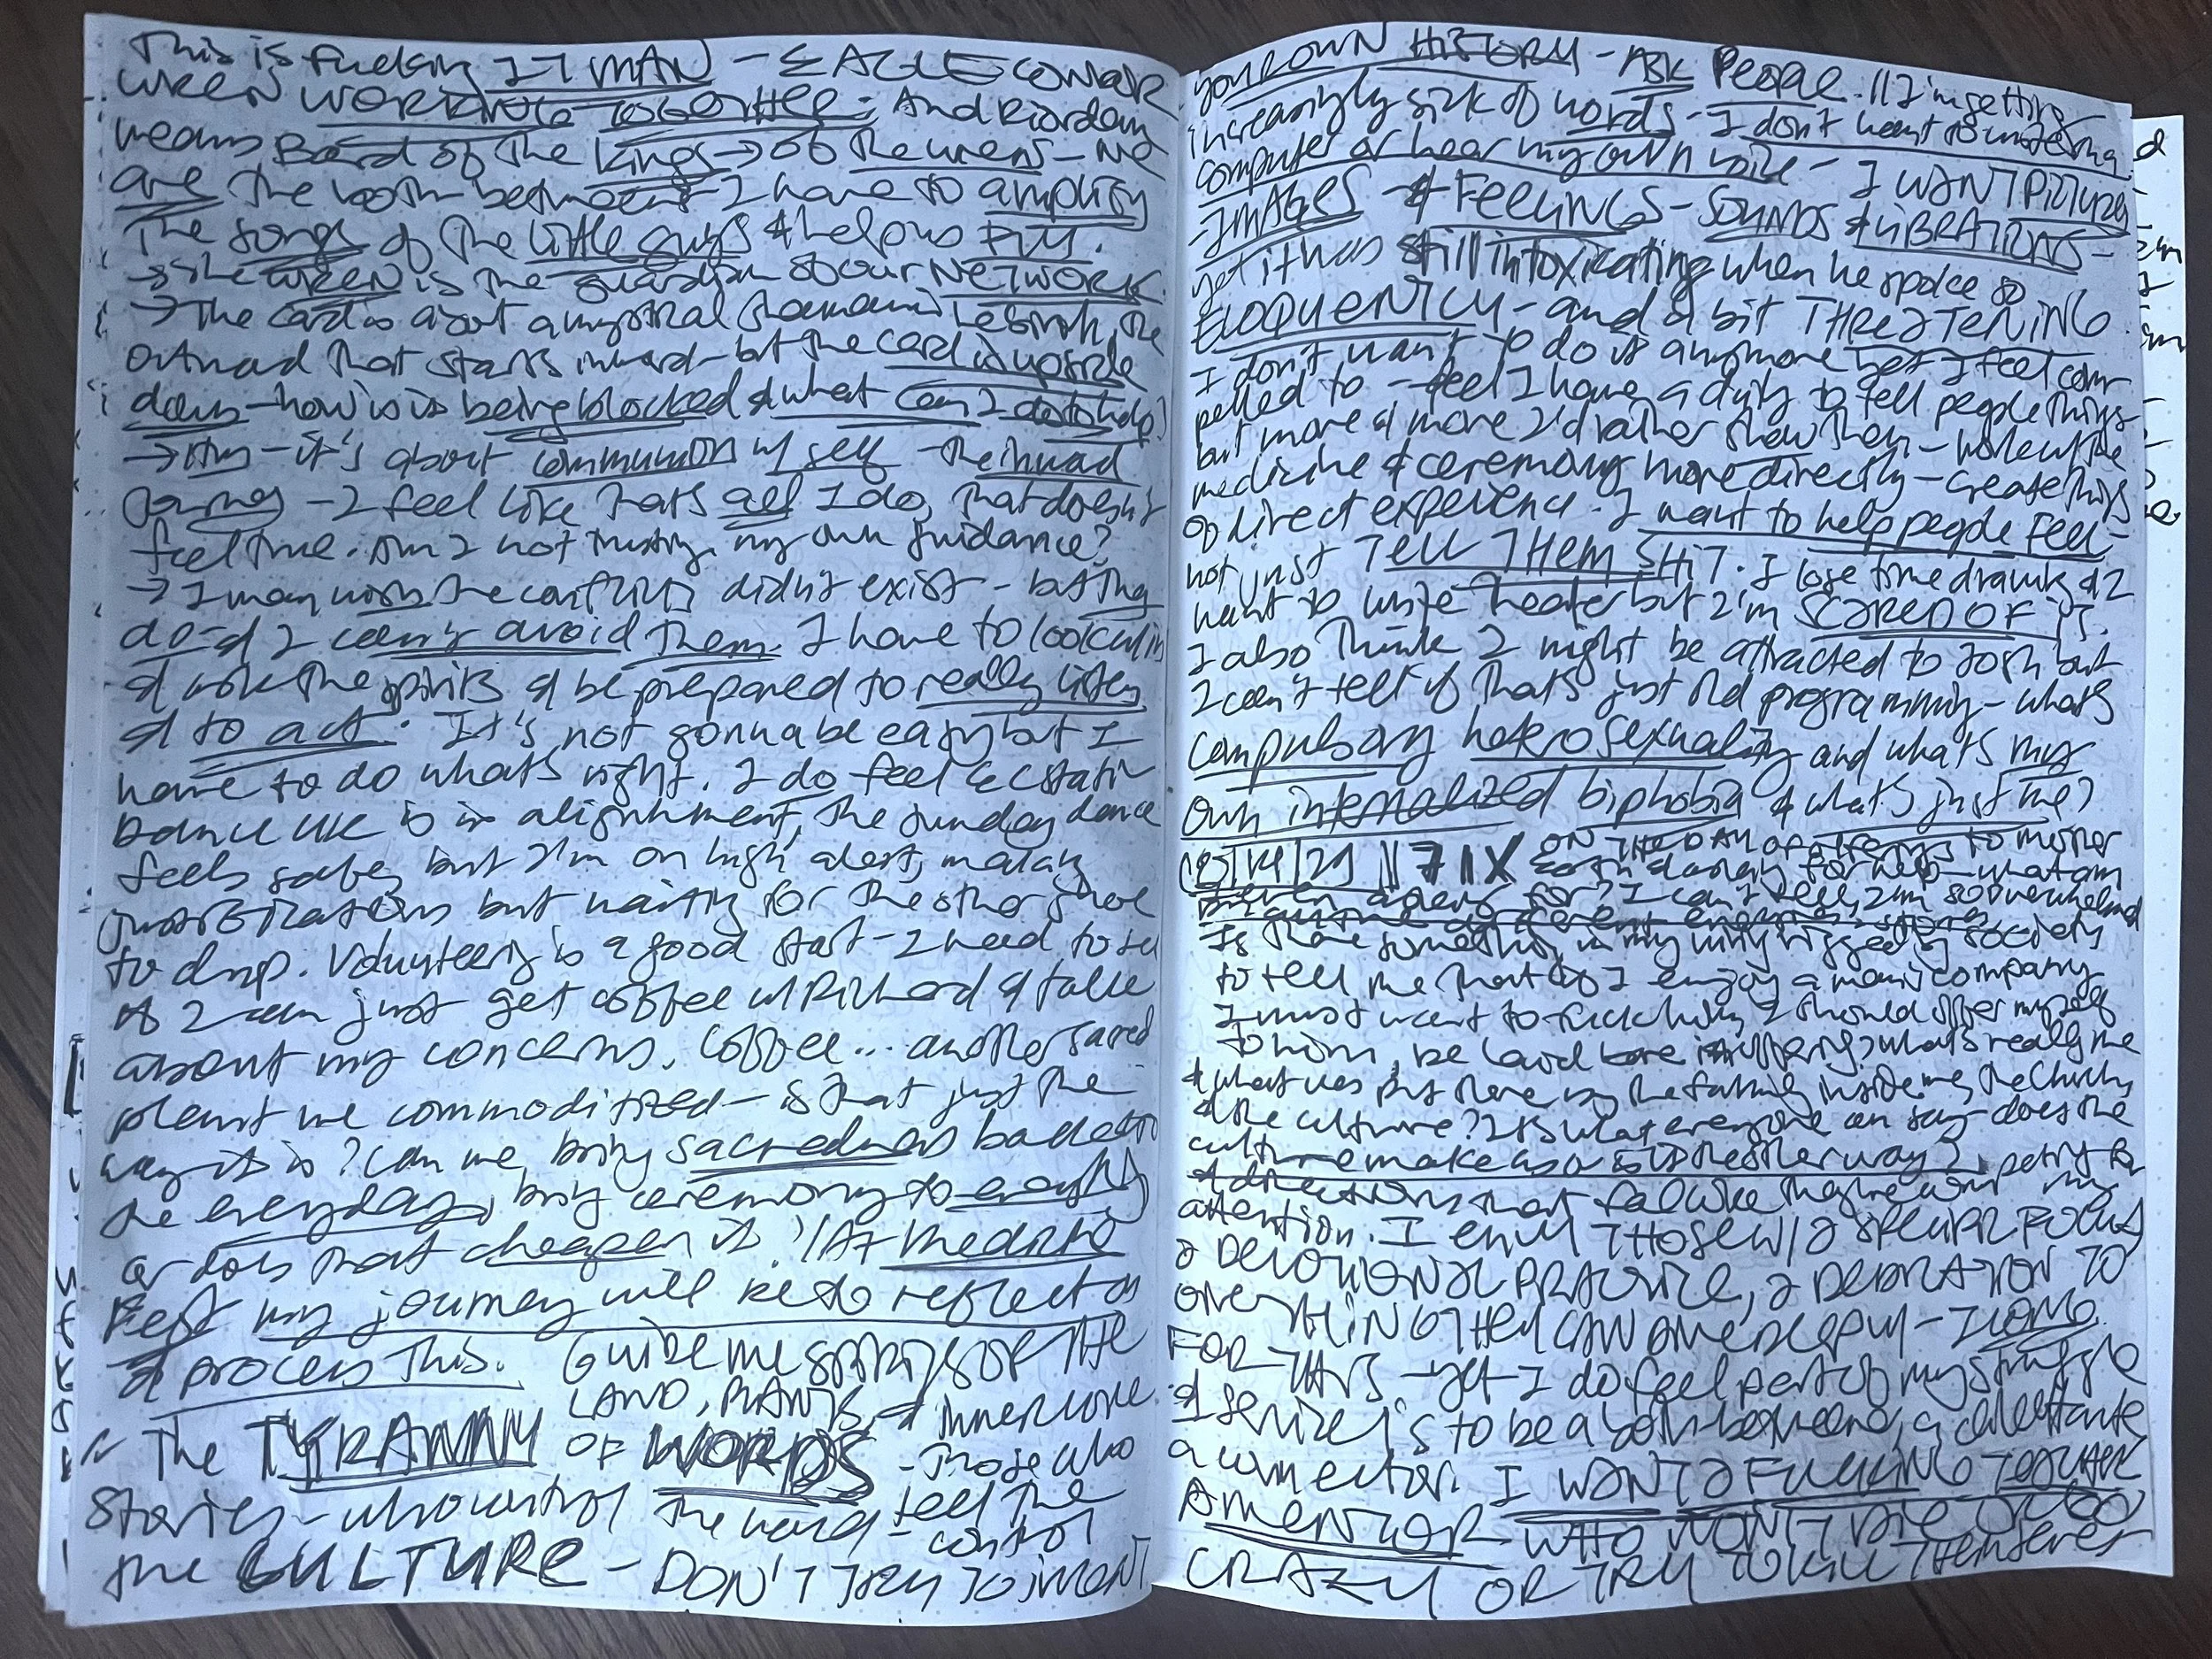 This is fucking IT MAN - EAGLE CONDOR
WREN WORKING TOGETHER; And Riordan
means Bard of the kings → of the wrens - we
are the both between I have to amplify
the songs of the little guys & help us FLY.
→ the WREN is the guardian of our NETWORK.
→ The card is about a mystical shamanic rebirth, the
outward that starts inward - but the card is upside
down - how is it being blocked & what can I do to help?
→ Hm - it's about communion w/ self - the inward
journey - I feel like that's all I do, that doesn't
feel true. Am I not trusting my own guidance?
→ I may wish the conflicts didn't exist - but they
do - & I can't avoid them. I have to look
& ask the spirits & be prepared to really listen
& to act. It's not gonna be easy but I
have to do what's right. I do feel ecstatic
Dance UK is in alignment, the Sunday dance
feels safe, but I'm on high alert, making
justifications but waiting for the other shoe
to drop. Volunteering is a good start - I need to see
if I can just get coffee w/ Richard & talk
about my concerns. Coffee... another sacred
plant we commoditized - is that just the
way it is? Can we bring sacredness back to
the everyday, bring ceremony to everything
or does that cheapen it? // At Medicine
Fest my journey will be to reflect on
& process this. GUIDE ME SPIRITS OF THE
LAND, PLANTS, & inner love.
The TYRANNY OF WORDS - Those who tell the
stories - who control the word - control
the CULTURE - DON'T TRY TO INVENT
YOUR OWN HISTORY - ASK PEOPLE. // I'm getting
increasingly sick of words - I don't want to write on a
computer or hear my own voice - I WANT PICTURES
- IMAGES & FEELINGS - SOUNDS & VIBRATIONS -
yet it was still intoxicating when he spoke so
ELOQUENTLY - and a bit THREATENING.
I don't want to do it anymore yet I feel com-
pelled to - feel I have a duty to tell people things
but more & more I'd rather show them - work with the
medicine & ceremony more directly - create things
of direct experience. I want to help people feel -
not just TELL THEM SHIT. I lose time drawing & I
want to write theater but I'm SCARED OF IT.
I also think I might be attracted to Josh but
I can't tell if that's just old programming - what's
compulsory heterosexuality and what's my
own internalized biphobia & what's just me?
ON THE DAY OF offerings to mother
earth & asking for help - what am
I for? I can't tell, I'm so overwhelmed
Is there something in my wiring rigged by society
to tell me that if I enjoy a man's company
I must want to fuck him, I should offer myself
to him, be laid bare in offering? What's really me
& what was put there by the family inside me, the Church,
& the culture? It's what everyone can say - does the
culture make us or is it the other way?
& directions that feel like they're competing for my
attention. I ENVY THOSE W/ A SPECIFIC FOCUS,
A DEVOTIONAL PRACTICE, A DEDICATION TO
ONE THING THEY CAN DIVE DEEPLY - I LONG
FOR THIS - yet I do feel part of my struggle
& service is to be a both between, a dilettante
a connector. I WANT A FUCKING TEACHER
A MENTOR WHO WON'T DIE OR GO
CRAZY OR TRY TO KILL THEMSELVES